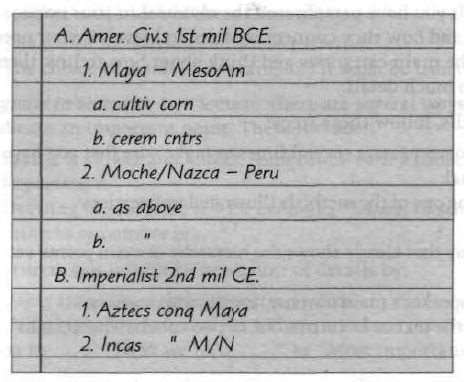 A. Amer. Civ.s 1st mil BCE.
1. Maya – MesoAm
a. cultiv corn
b. cerem cntrs
2. Moche/Nazca – Peru
a. as above
b. "
B. Imperialist 2nd mil CE.
1. Aztecs conq Maya
2. Incas " M/N